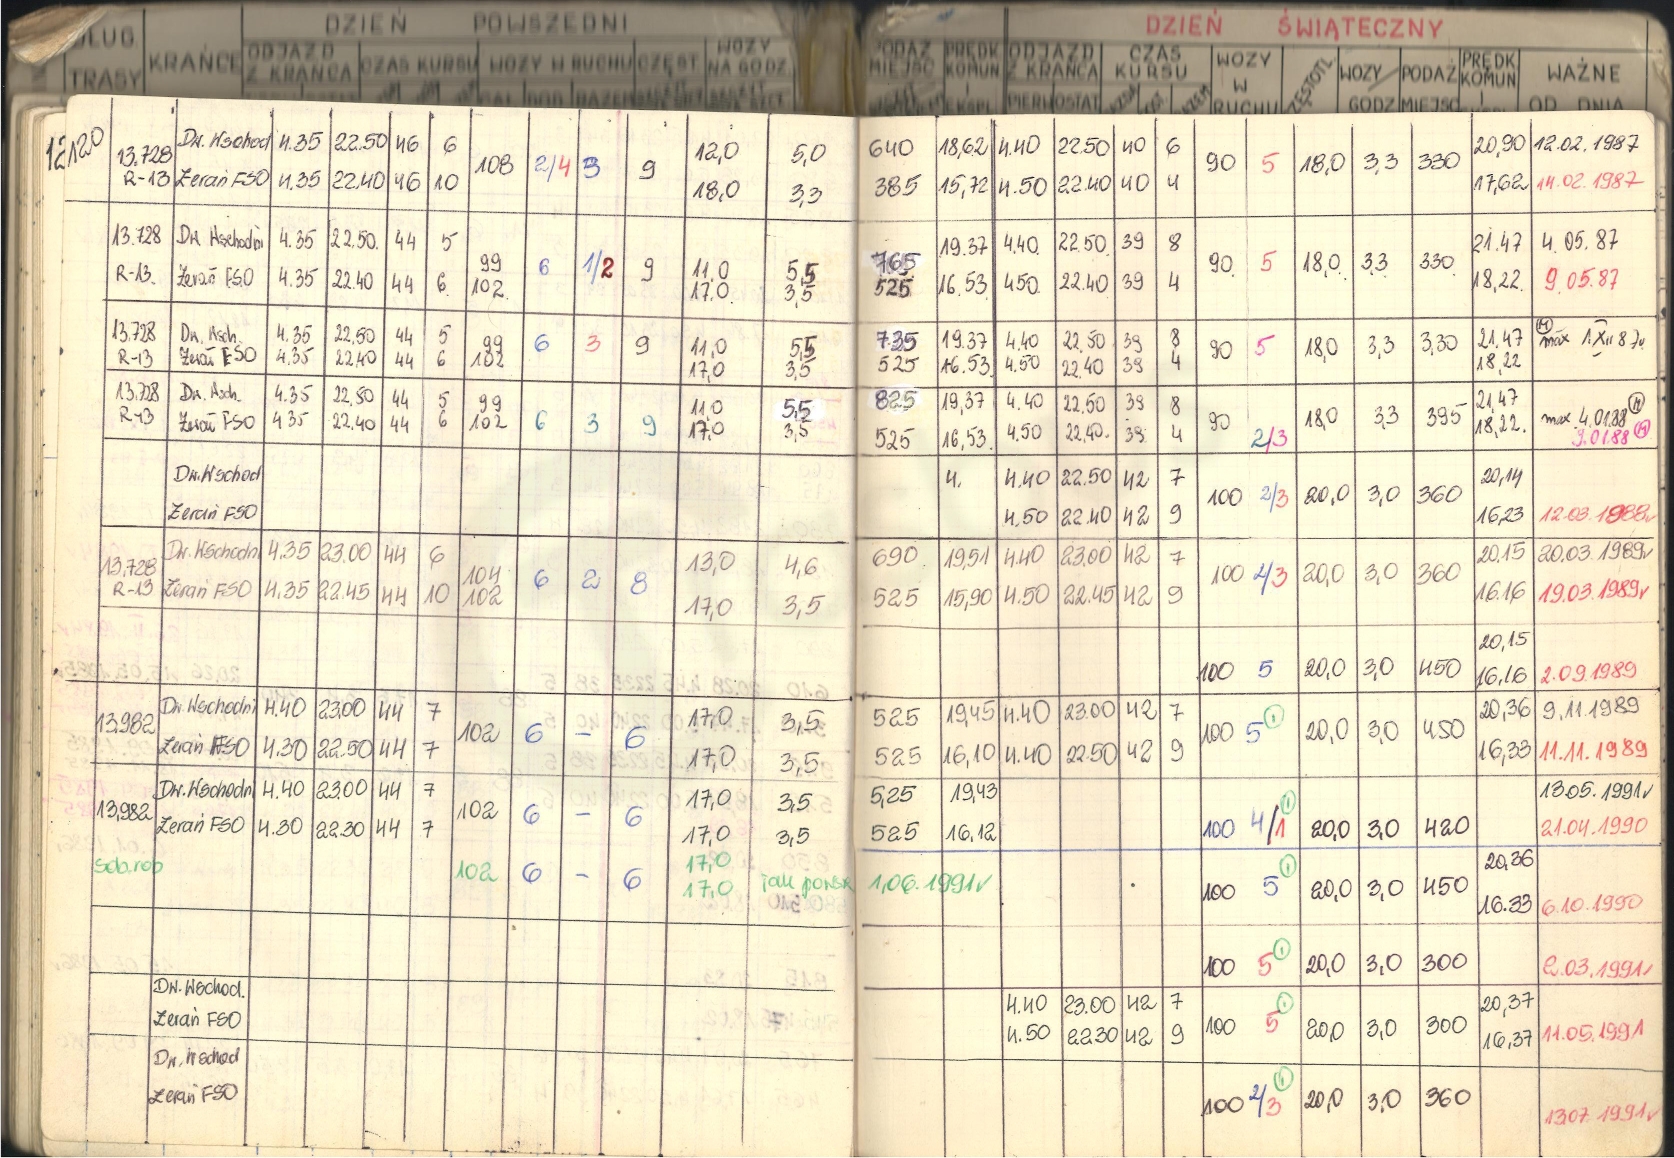 DZIEŃ POWSZEDNI DZIEŃ ŚWIĄTECZNY
DŁUG TRASY KRAŃCE ODJAZD Z KRAŃCA CZAS KURSU WOZY W RUCHU CZĘST WOZY NA GODZ PODAŻ MIEJSC PRĘDK KOMUN I EKSPL ODJAZD Z KRAŃCA CZAS KURSU WOZY W RUCHU WOZY GODZ PODAŻ MIEJSC PRĘDK KOMUN I WAŻNE OD DNIA
PIERW OSTAT
120 Dw. Wschod 4.35 22.50 46 6 12,0 5,0 640 18,62 4.40 22.50 40 6 20,90 12.02.1987
13.728 108 2/4 3 9 90 5 18,0 3,3 330
R-13 Żerań FSO 4.35 22.40 46 10 18,0 3,3 385 15,72 4.50 22.40 40 4 17,62 14.02.1987
13.728 Dw. Wschodni 4.35 22.50. 44 5 99 6 1/2 9 11,0 5,5 765 19.37 4.40. 22.50. 39 8 90. 5 18,0. 3,3 330. 21.47 4.05.87
R-13. Żerań FSO 4.35 22.40 44 6. 102. 17,0. 3,5 525 16.53 4.50. 22.40 39 4 18,22. 9.05.87
13.728 Dw. Wsch. 4.35 22.50 44 5 99 6 3 9 11,0 5,5 735 19.37 4.40 22,50 39 8 90 5 18,0 3,3 3,30 21,47
R-13 Żerań FSO 4.35 22.40 44 6 102 17,0 3,5 525 16.53 4.50 22.40 39 4 18,22
13.728 Dw. Wsch. 4.35 22,50 44 5 99 6 3 9 11,0 5,5 825 19,37 4.40 22,50 39 8 90 2/3 18,0 3,3 395 21,47 max 4.01.88 M
R-13 Żerań FSO 4.35 22.40 44 6 102 17,0 3,5 525 16,53. 4.50 22.40. 39 4 18,22. 9.01.88 M
Dw. Wschod 4. 4.40 22.50 42 7 100 2/3 20,0 3,0 360 20,14
Żerań FSO 4.50 22.40 42 9 16,23 12.03.1988
13,728 Dw. Wschodni 4.35 23.00 44 6 104 6 2 8 13,0 4,6 690 19,51 4.40 23.00 42 7 100 2/3 20,0 3,0 360 20,15 20.03.1989
R-13 Żerań FSO 4.35 22.45 44 10 102 17,0 3,5 525 15,90 4.50 22.45 42 9 16.16 19.03.1989
20,15
100 5 20,0 3,0 450 16,16 2.09.1989
13,982 Dw. Wschodni 4.40 23,00 44 7 102 6 - 6 17,0 3,5 525 19,45 4.40 23.00 42 7 100 5 1 20,0 3,0 450 20,36 9.11.1989
Żerań FSO 4.30 22.50 44 7 17,0 3,5 525 16,10 4.40 22.50 42 9 16,33 11.11.1989
Dw. Wschodni 4.40 23.00 44 7 17,0 3.5 5,25 19,43 13.05.1991
13,982 Żerań FSO 4.30 22.30 44 7 102 6 - 6 17,0 3,5 525 16,12 100 4/1 1 20,0 3,0 420 21.04.1990
sob.rob 102 6 - 6 17,0 17,0 jak powsz 1.06.1991 100 5 1 20,0 3,0 450 20,36 16.33 6.10.1990
100 5 1 20,0 3,0 300 2.03.1991
Dw. Wschod. 4.40 23.00 42 7 100 5 1 20,0 3,0 300 20,37
Żerań FSO 4.50 22.30 42 9 16,37 11.05.1991
Dw. Wschod 100 2/3 1 20,0 3,0 360
Żerań FSO 13.07.1991